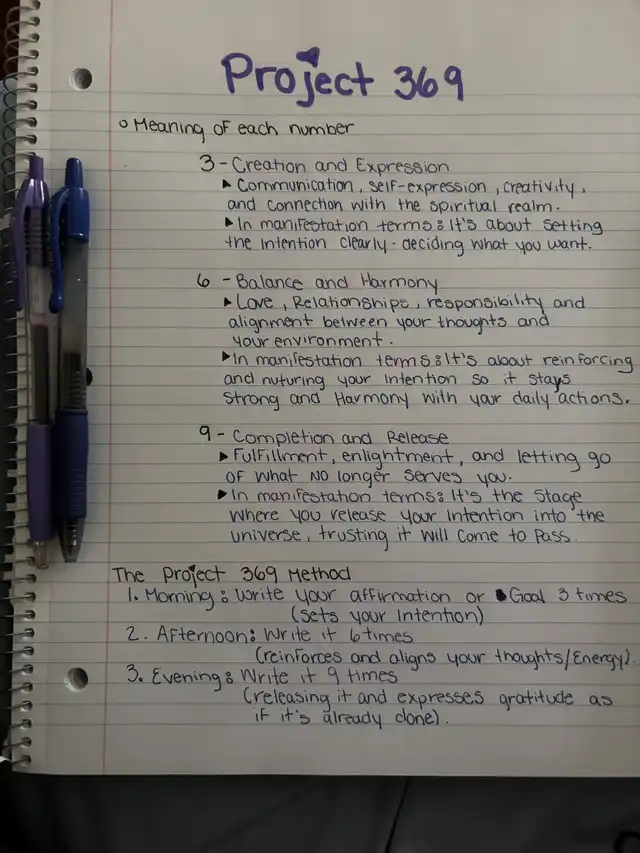 Project 369
Meaning of each number
3 - Creation and Expression
▸ Communication, self-expression, creativity,
and connection with the spiritual realm.
▸ In manifestation terms: It's about setting
the intention clearly - deciding what you want.
6 - Balance and Harmony
▸ Love, Relationships, responsibility and
alignment between your thoughts and
your environment.
▸ In manifestation terms: It's about reinforcing
and nuturing your intention so it stays
strong and Harmony with your daily actions.
9 - Completion and Release
▸ Fulfillment, enlightment, and letting go
of what no longer serves you.
▸ In manifestation terms: It's the stage
where you release your intention into the
universe, trusting it will come to pass.
The Project 369 Method
1. Morning: Write your affirmation or Goal 3 times
(sets your intention)
2. Afternoon: Write it 6 times
(reinforces and aligns your thoughts/Energy).
3. Evening: Write it 9 times
(releasing it and expresses gratitude as
if it's already done).